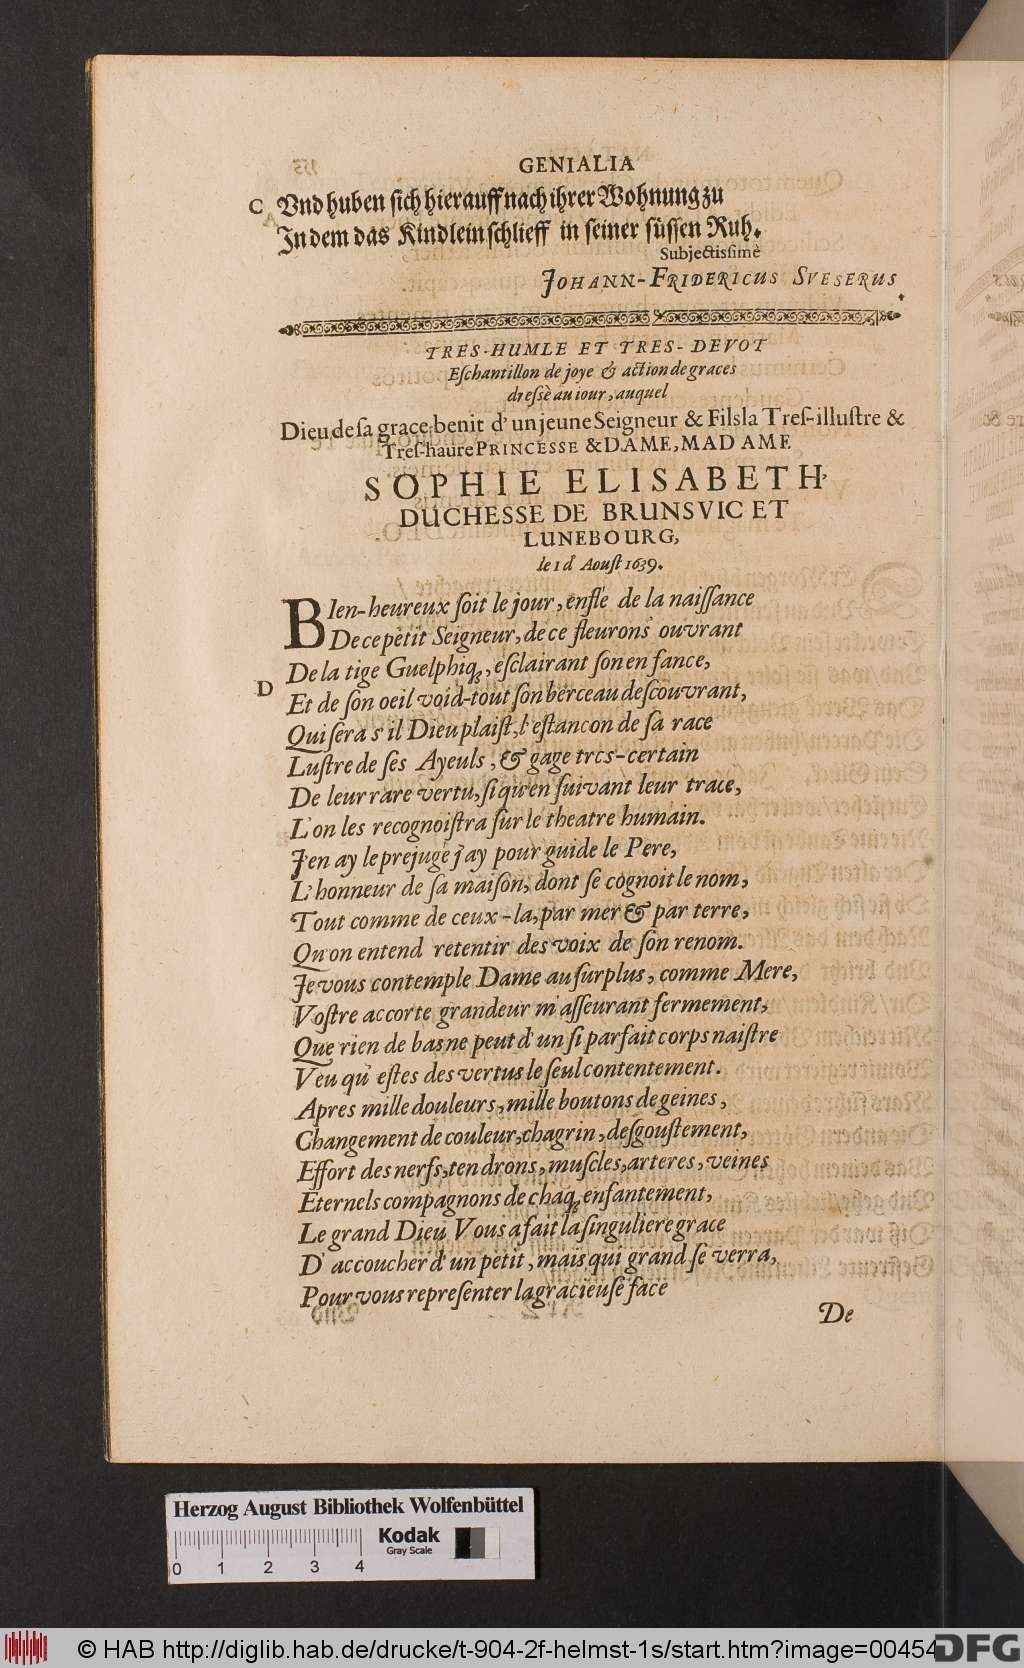 GENIALIA
C Vnd huben sich hierauff nach ihrer Wohnung zu
In dem das Kindlein schlieff in seiner süssen Ruh.
Subjectissimè
JOHANN-FRIDERICUS SVESERUS.
TRES-HUMLE ET TRES-DEVOT
Eſchantillon de joye & action de graces
dreſsè au iour, auquel
Dieu de ſa grace benit d'un jeune Seigneur & Fils la Treſ-illuſtre &
Treſ-haure PRINCESSE & DAME, MADAME
SOPHIE ELISABETH,
DUCHESSE DE BRUNSVIC ET
LUNEBOURG,
le 1 d' Aouſt 1639.
BIen-heureux ſoit le jour, enflé de la naiſſance
De ce petit Seigneur, de ce fleurons ouvrant
De la tige Guelphiq, eſclairant ſon enfance,
D Et de ſon oeil void-tout ſon berceau deſcouvrant,
Qui ſera s'il Dieu plaiſt, l'eſtancon de ſa race
Luſtre de ſes Ayeuls, & gage tres-certain
De leur rare vertu, ſi qu'en ſuivant leur trace,
L'on les recognoiſtra ſur le theatre humain.
J'en ay le prejugé j'ay pour guide le Pere,
L'honneur de ſa maiſon, dont ſe cognoit le nom,
Tout comme de ceux-la, par mer & par terre,
Qu'on entend retentir des voix de ſon renom.
Je vous contemple Dame au ſurplus, comme Mere,
Voſtre accorte grandeur m'aſſeurant fermement,
Que rien de bas ne peut d'un ſi parfait corps naiſtre
Veu qu'eſtes des vertus le ſeul contentement.
Apres mille douleurs, mille boutons de geines,
Changement de couleur, chagrin, deſgouſtement,
Effort des nerfs, tendrons, muſcles, arteres, veines
Eternels compagnons de chaq, enfantement,
Le grand Dieu Vous a fait la ſinguliere grace
D'accoucher d'un petit, mais qui grand ſe verra,
Pour vous repreſenter la gracieuſe face
De
Herzog August Bibliothek Wolfenbüttel
Kodak
Gray Scale
0 1 2 3 4
© HAB http://diglib.hab.de/drucke/t-904-2f-helmst-1s/start.htm?image=00454
DFG